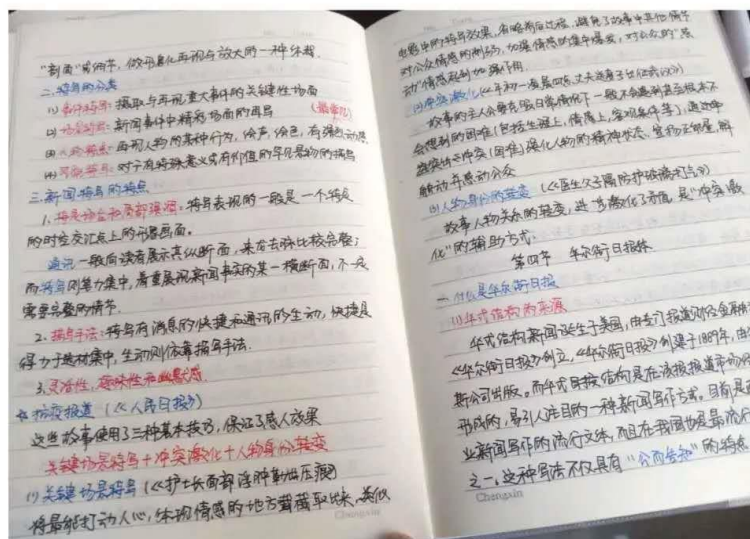 "剖面"或细节，做形象化再现与放大的一种体裁.
二.特写的分类
(1)事件特写：摄取与再现重大事件的关键性场面
(2)场景特写：新闻事件中精彩场面的再写 (最常见)
(3)人物特写：再现人物的某种行为，绘声，绘色，有强烈动感
(4)景物特写：对于有特殊意义或有价值的罕见景物的描写
三.新闻特写的特点
1.特定场合和局部强调：特写表现的一般是一个特定
的时空交汇点上的形象画面。
通讯一般向读者展示其纵断面，来龙去脉比较完整；
而特写则笔力集中，着重展现新闻事实的某一横断面，不一定
需要完整的情节.
2.描写手法：特写有消息的快捷和通讯的生动，快捷是
得力于题材集中，生动则依靠描写手法.
3.灵活性、趣味性和幽默感.
抗疫报道（《人民日报》）
这些故事使用了三种基本技巧，保证了感人效果
关键场景特写＋冲突激化＋人物身份转变
(1)关键场景特写（《护士长面部浮肿勒出压痕》）
将最能打动人心，体现情感的地方截取出来，类似
Chengxin
电影中的特写效果，省略前后过程，避免了故事中其他情节
对公众情感的削弱，加强情感的集中爆发，对公众的"感
动"情感起到加强作用.
故事的主人公要克服日常情况下一般不会遇到甚至根本不
会想到的困难（包括生理上，情感上，客观条件等），通过冲
感动并感动公众
(3)人物身份的转变（《医生父子隔防护玻璃打气》）
故事人物关系的转变，进一步激化了矛盾，是"冲突激
化"的辅助方式.
第四节 华尔街日报体
一.什么是华尔街日报
(1)华式结构的来源
华式结构新闻诞生于美国，由专门报道财经金融
《华尔街日报》创立，《华尔街日报》创建于1889年，由
斯公司出版。而华式日报结构是在该报报道市场
形成的，易引人注目的一种新闻写作方式。目前是
业新闻写作的流行文体，而且在我国也是最流行
之一，这种写法不仅具有"
Chengxin